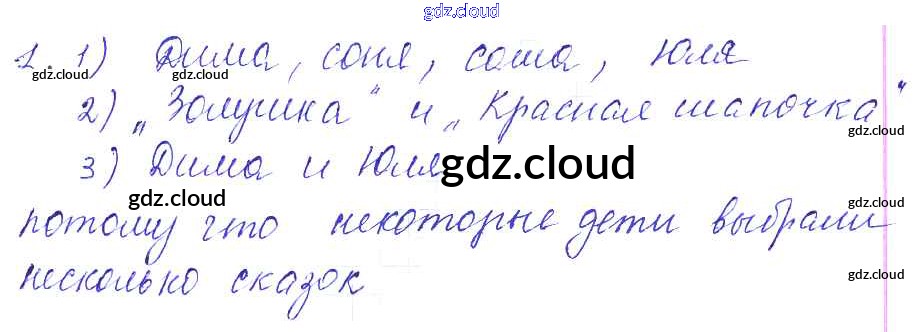 gdz.cloud
1. 1) Дима, соня, саша, Юля
gdz.cloud gdz.cloud gdz.cloud
2) „Золушка" и „Красная шапочка"
gdz.cloud
3) Дима и Юля
gdz.cloud
gdz.cloud gdz.cloud
потому что некоторые дети выбрали
несколько сказок
gdz.cloud